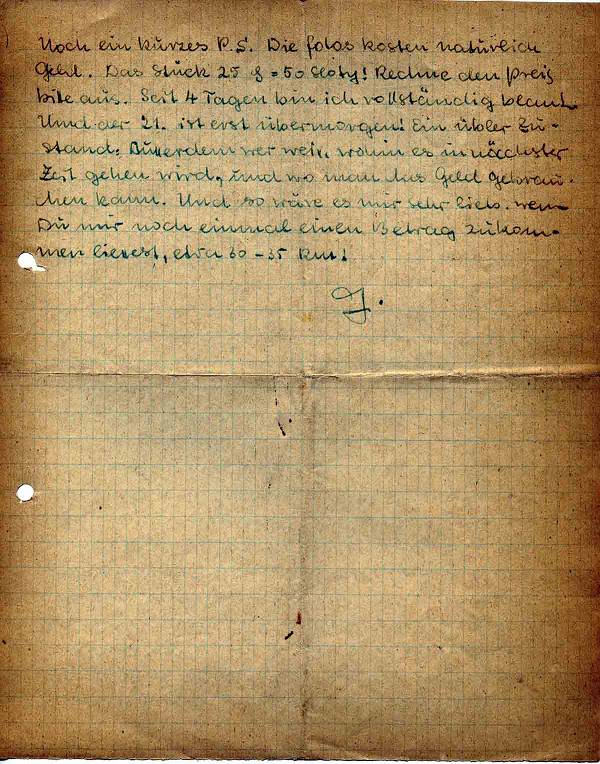 Noch ein kurzes P.S. Die fotos kosten natürlich
Geld. Das Stück 25 ₰ = 50 Sloty! Rechne den Preis
bite aus. Seit 4 Tagen bin ich vollständig blank
Und der 21. ist erst übermorgen! Ein übler Zu-
stand. Ausserdem wer weis, wohin es in nächster
Zeit gehen wird, und wo man das Geld gebrau-
chen kann. Und so wäre es mir sehr lieb. wenn
Du mir noch einmal einen Betrag zukom-
men liesest, etwa 30 - 35 Rm!
J.